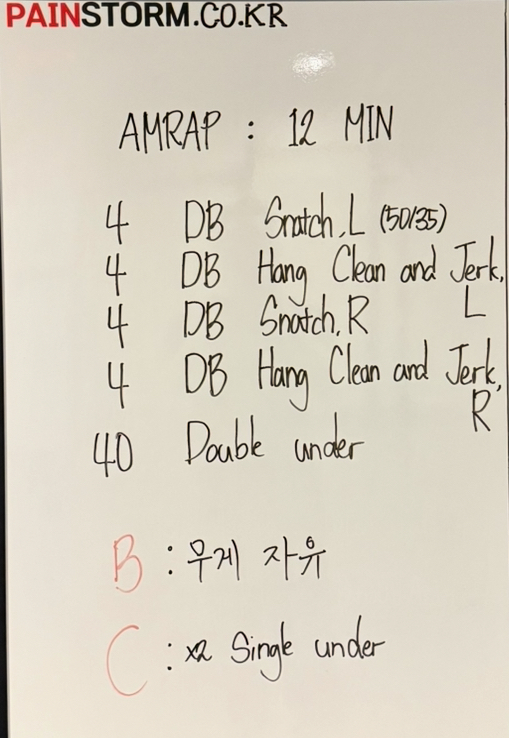 PAINSTORM.CO.KR
AMRAP : 12 MIN
4 DB Snatch, L (50/35)
4 DB Hang Clean and Jerk, L
4 DB Snatch, R
4 DB Hang Clean and Jerk, R
40 Double under
B : 무게 자유
C : x2 Single under